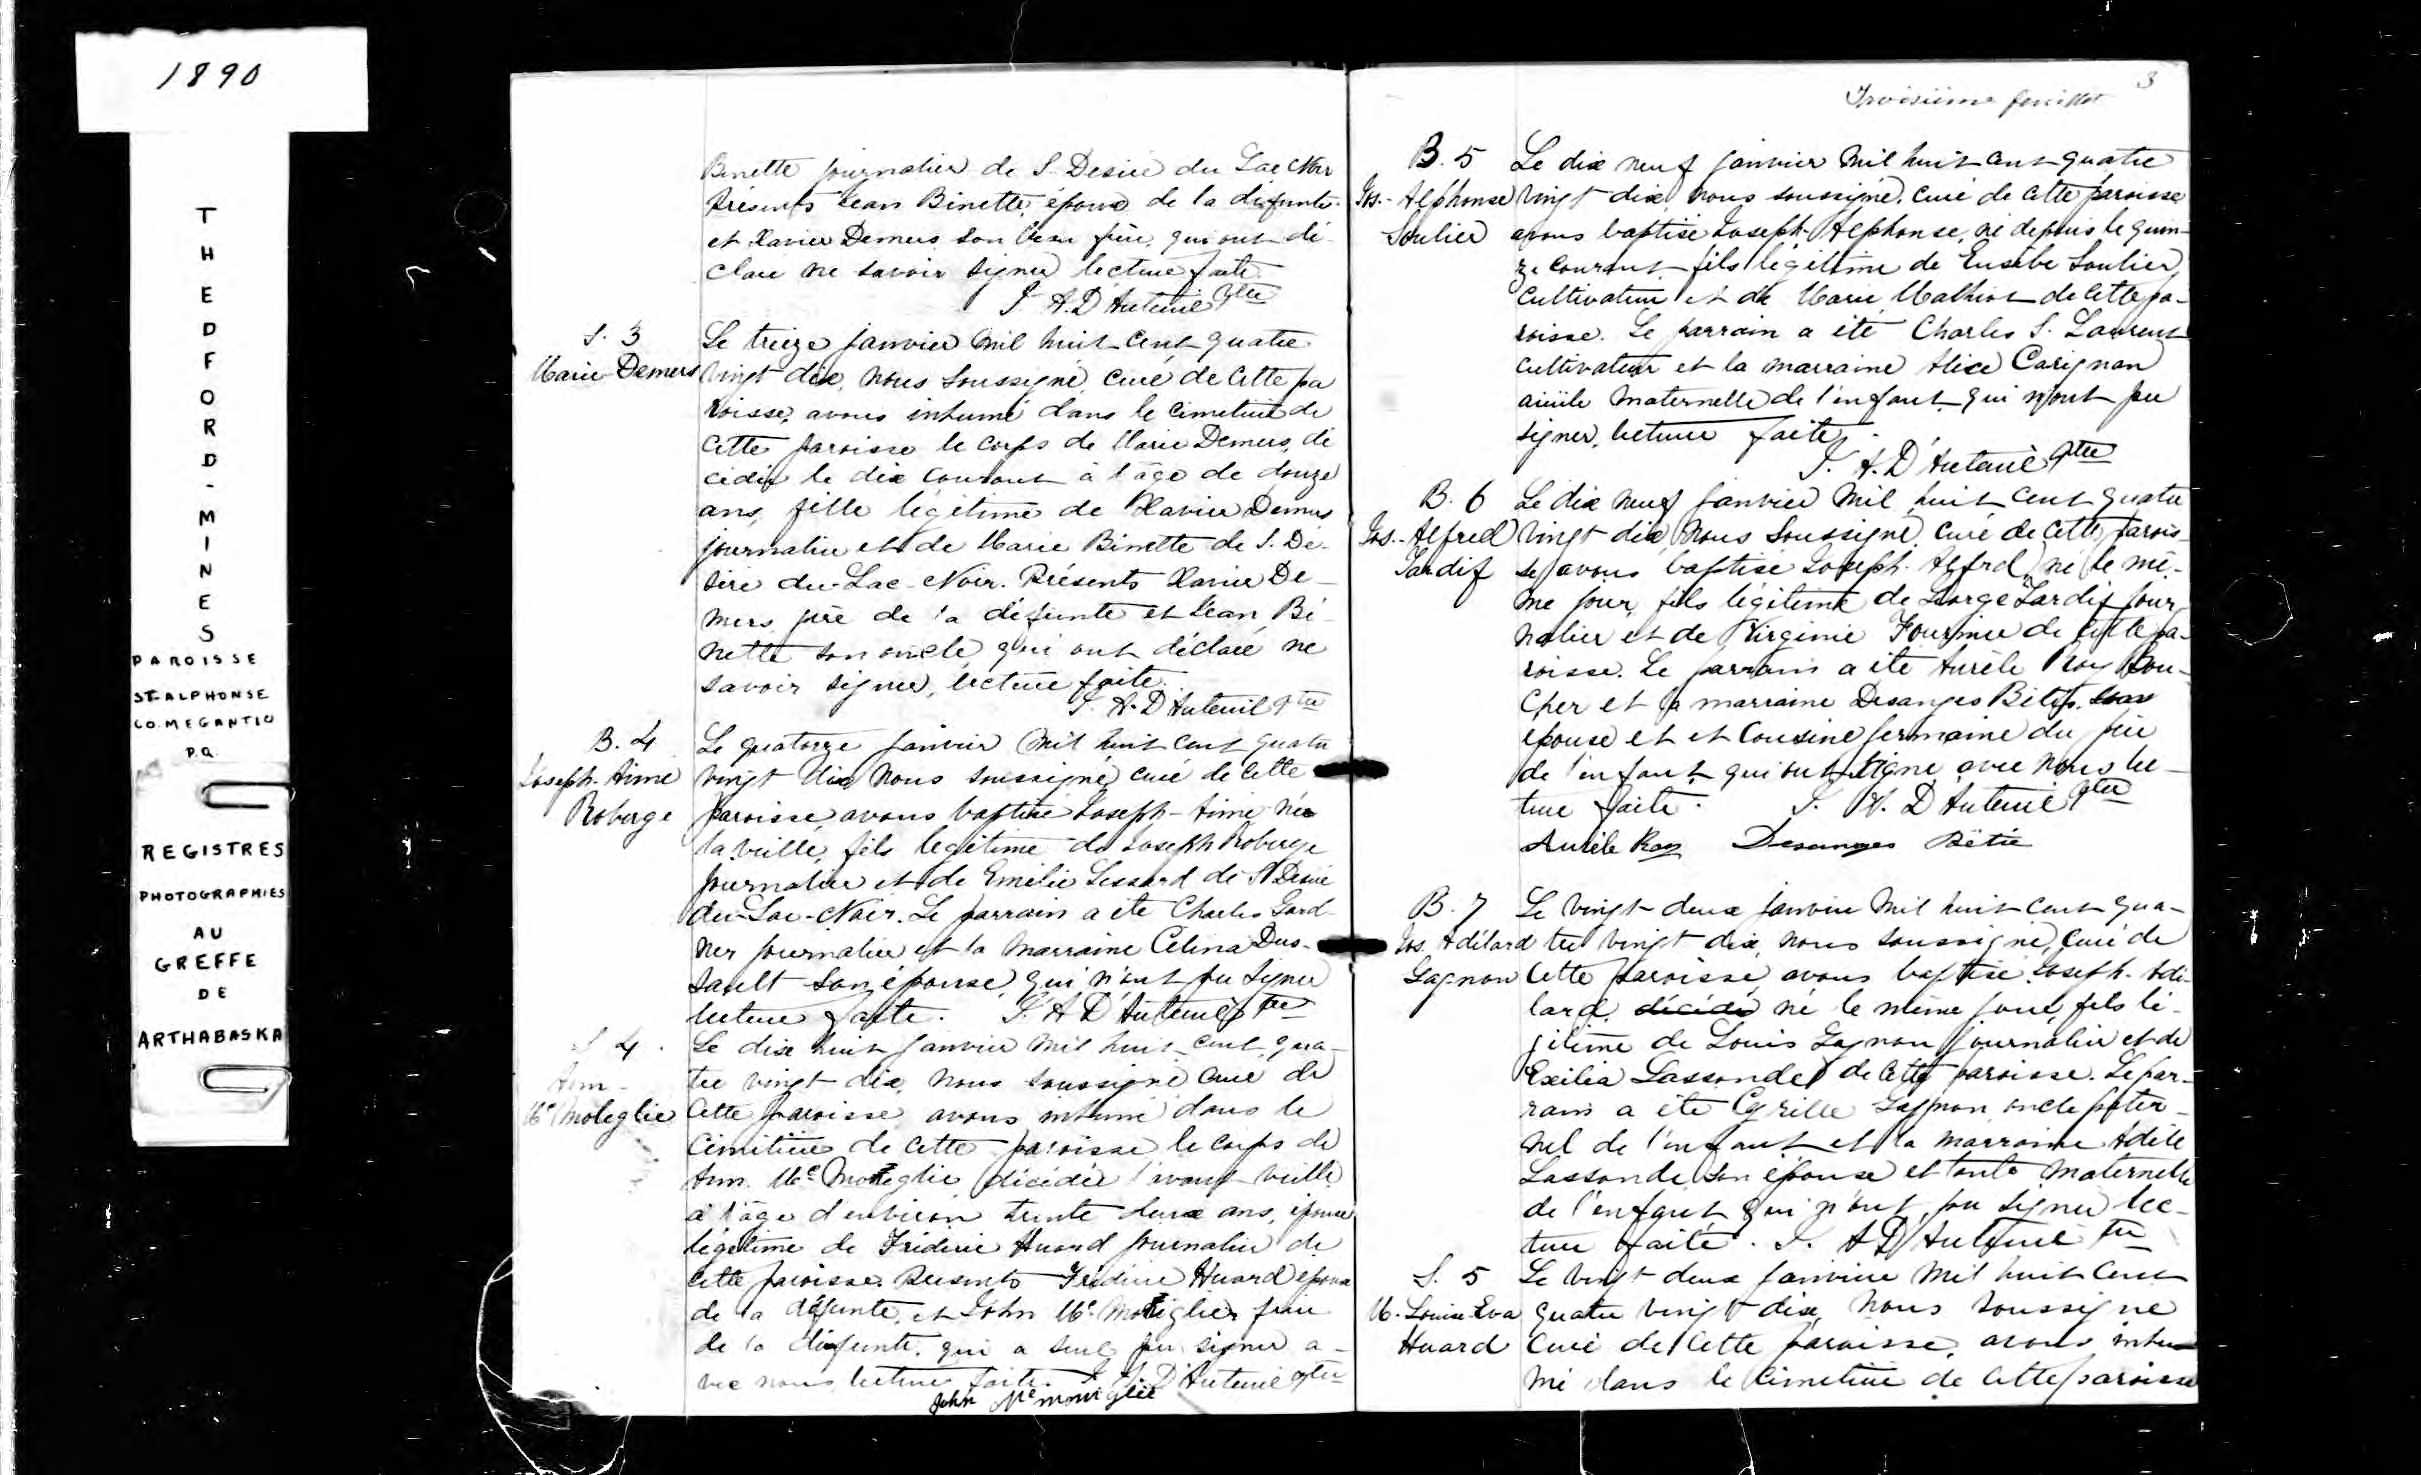 1890
THEDFORD-MINES
PAROISSE
ST-ALPHONSE
CO. MEGANTIC
P.Q.
REGISTRES
PHOTOGRAPHIES
AU
GREFFE
DE
ARTHABASKA
Binette journalier de S. Desiré du Lac Noir
Présents Jean Binette, époux de la défunte
et Xavier Demers son beau frère, qui ont dé-
claré ne savoir signer lecture faite.
J. A. D'Auteuil Ptre
S. 3
Marie Demers
Le treize janvier mil huit cent quatre
vingt dix, nous soussigné, curé de cette pa
roisse, avons inhumé dans le cimetière de
cette paroisse le corps de Marie Demers, dé
cédée le dix courant à l'âge de douze
ans, fille légitime de Xavier Demers
journalier et de Marie Binette de S. Dé-
siré du-Lac-Noir. Présents Xavier De-
mers père de la défunte et Jean Bi-
nette son oncle qui ont déclaré ne
savoir signer, lecture faite.
J. A. D'Auteuil Ptre
B. 4
Joseph-Aimé
Roberge
Le quatorze janvier mil huit cent quatre
vingt dix nous soussigné, curé de cette
paroisse, avons baptisé Joseph-Aimé né
la veille, fils légitime de Joseph Roberge
journalier et de Emélie Lessard de St Desiré
du-Lac-Noir. Le parrain a été Charles Gard-
ner journalier et la marraine Célina Dus-
sault son épouse, qui n'ont pu signer
lecture faite. J. A. D'Auteuil Ptre
S 4.
Ann
Mc Moteglie
Le dix huit janvier mil huit cent qua-
tre vingt dix, nous soussigné curé de
cette paroisse avons inhumé dans le
cimetière de cette paroisse le corps de
Ann. Mc Moteglie, décédée l'avant veille
à l'âge d'environ trente deux ans, épouse
légitime de Fréderic Huard journalier de
cette paroisse. Présents Fréderic Huard époux
de la défunte, et John Mc Moteglie frère
de la défunte, qui a seul pu signer a-
vec nous lecture faite. J. A. D'Auteuil Ptre
John Mc
3
Troisième feuillet
B. 5
Jos.-Alphonse
Soulier
Le dix neuf janvier mil huit cent quatre
vingt dix, nous soussigné, curé de cette paroisse
avons baptisé Joseph-Alphonse, né depuis le quin-
ze courant, fils légitime de Eusèbe Soulier,
cultivateur et de Marie Mathiot de cette pa-
roisse. Le parrain a été Charles S. Laurent
cultivateur et la marraine Alice Carignan
aieule maternelle de l'enfant qui n'ont pu
signer, lecture faite.
J. A. D'Auteuil Ptre
B. 6
Jos.-Alfred
Tardif
Le dix neuf janvier mil huit cent quatre
vingt dix, nous soussigné, curé de cette parois-
se avons baptisé Joseph-Alfred, né le mê-
me jour, fils légitime de George Tardif jour-
nalier et de Virginie Fournier de cette pa-
roisse. Le parrain a été Aurèle Roy Bou-
cher et la marraine Desanges Bétie, son
épouse et et cousine germaine du père
de l'enfant, qui ont signé avec nous lec-
ture faite. J. A. D'Auteuil Ptre
Aurèle Roy Desanges Bétie
B. 7
Jos. Adélard
Gagnon
Le vingt-deux janvier mil huit cent qua-
tre vingt dix, nous soussigné, curé de
cette paroisse, avons baptisé Joseph-Adé-
lard, décédé né le même jour, fils lé-
gitime de Louis Gagnon journalier et de
Exilia Lassonde de cette paroisse. Le par-
rain a été Cyrille Gagnon oncle pater-
nel de l'enfant et la marraine Adèle
Lassonde son épouse et tante maternelle
de l'enfant qui n'ont pu signer lec-
ture faite. J. A. D'Auteuil Ptre
S. 5
M. Louise-Eva
Huard
Le vingt deux janvier mil huit cent
quatre vingt dix, nous soussigné
curé de cette paroisse, avons inhu-
mé dans le cimetière de cette paroisse